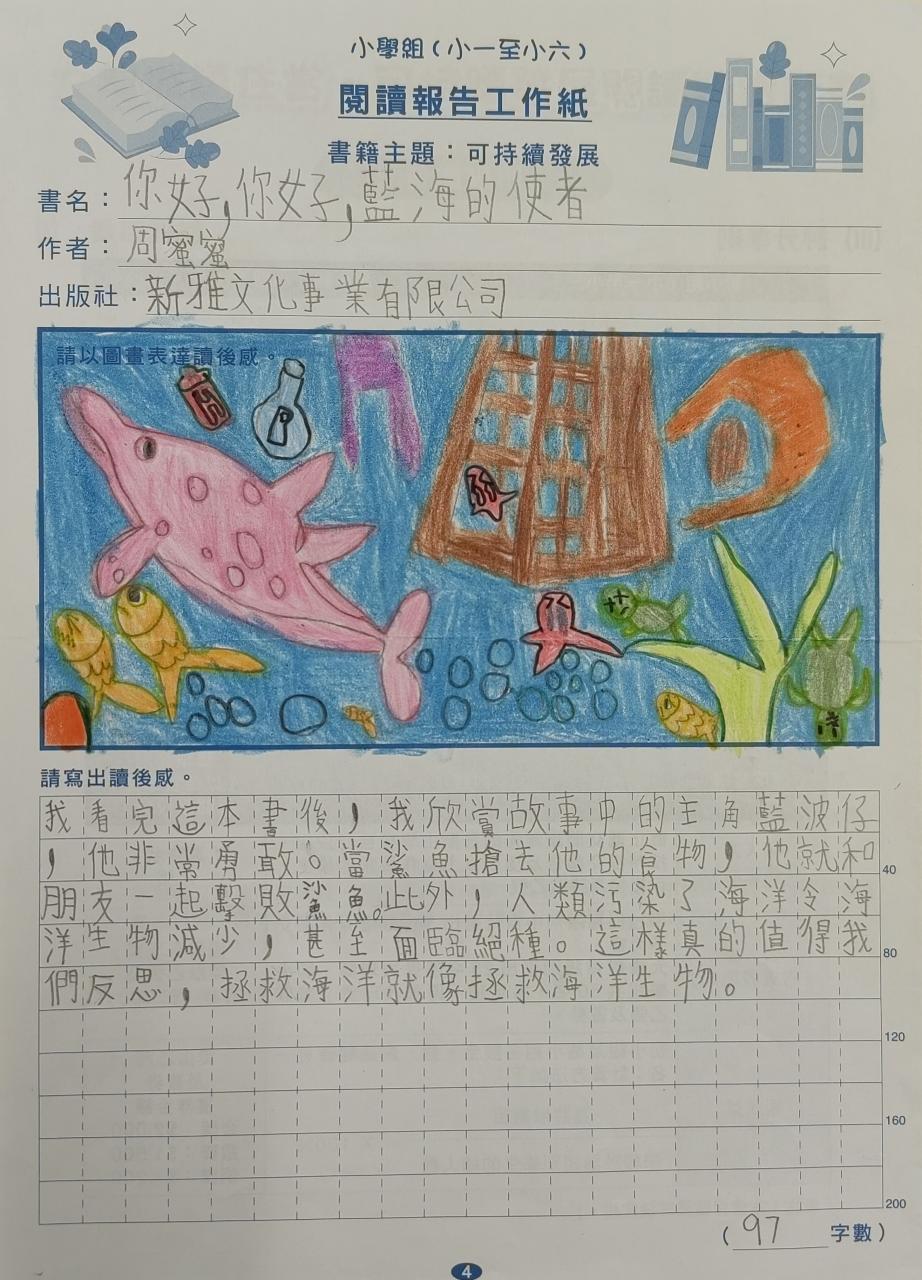 小學組(小一至小六)
閱讀報告工作紙
書籍主題：可持續發展
書名：你好,你好,藍海的使者
作者：周蜜蜜
出版社：新雅文化事業有限公司
請以圖畫表達讀後感。
請寫出讀後感。
我看完這本書後,我欣賞故事中的主角藍波仔
,他非常勇敢。當鯊魚搶去他的食物,他就和
40
朋友一起擊敗鯊魚。此外,人類污染了海洋令海
洋生物減少,甚至面臨絕種。這樣真的值得我
80
們反思,拯救海洋就像拯救海洋生物。
120
160
200
(97字數)
4